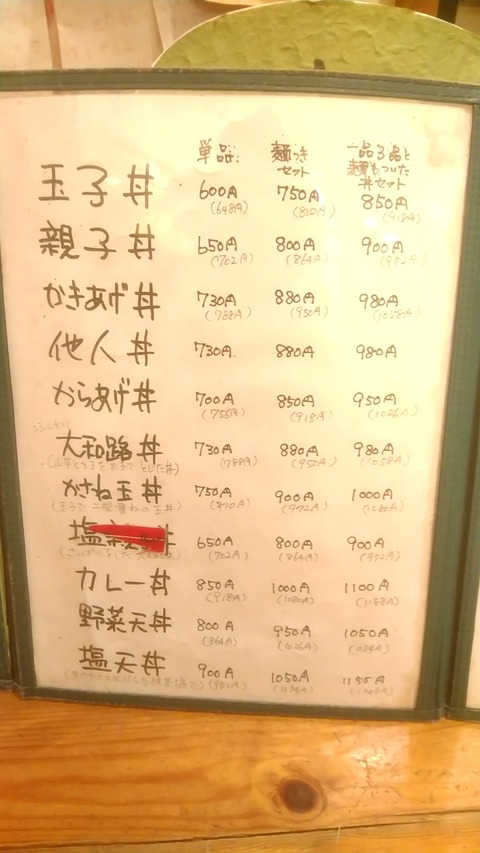 単品 麺つきセット 一品3品と麺もついた丼セット
玉子丼 600円 750円 850円
(648円) (810円) (918円)
親子丼 650円 800円 900円
(702円) (864円) (972円)
かきあげ丼 730円 880円 980円
(788円) (950円) (1058円)
他人丼 730円 880円 980円
からあげ丼 700円 850円 950円
(756円) (918円) (1026円)
大和路丼 730円 880円 980円
(788円) (950円) (1058円)
かさね玉丼 750円 900円 1000円
(810円) (972円) (1080円)
塩 650円 800円 900円
(702円) (864円) (972円)
カレー丼 850円 1000円 1100円
(918円) (1080円) (1188円)
野菜天丼 800円 950円 1050円
(864円) (1026円) (1134円)
塩天丼 900円 1050円 1155円
(972円) (1134円)